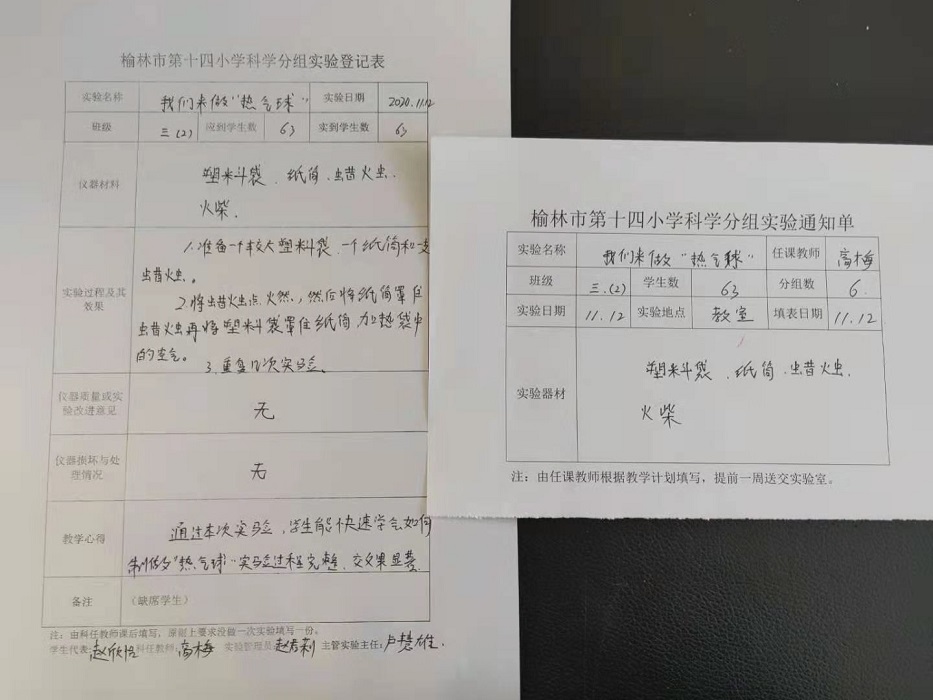 榆林市第十四小学科学分组实验登记表
实验名称 我们来做“热气球” 实验日期 2020.11.12
班级 三(2) 应到学生数 63 实到学生数 63
仪器材料 塑料袋、纸筒、蜡烛、
火柴.
实验过程及其
效果
1.准备一个较大塑料袋、一个纸筒和一支
蜡烛。
2.将蜡烛点燃,然后将纸筒罩住
蜡烛再将塑料袋罩住纸筒加热袋中
的空气。
3.重复几次实验。
仪器质量或实
验改进意见 无
仪器损坏与处
理情况 无
教学心得 通过本次实验,学生能快速学会如何
制做“热气球”实验过程完整、效果显著.
备注 (缺席学生)
注:由科任教师课后填写,原则上要求没做一次实验填写一份。
学生代表:赵欣怡 科任教师:高梅 实验管理员: 主管实验主任:
榆林市第十四小学科学分组实验通知单
实验名称 我们来做“热气球” 任课教师 高梅
班级 三.(2) 学生数 63 分组数 6.
实验日期 11.12 实验地点 教室 填表日期 11.12
实验器材 塑料袋、纸筒、蜡烛、
火柴
注:由任课教师根据教学计划填写,提前一周送交实验室。